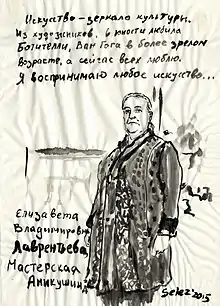 Искусство – зеркало культуры.
Из художников, в юности любила
Боттичелли, Ван Гога в более зрелом
возрасте, а сейчас всех люблю.
Я воспринимаю любое искусство...
Елизавета
Владимировна
Лаврентьева
Мастерская
Аникушина
Selez 2015